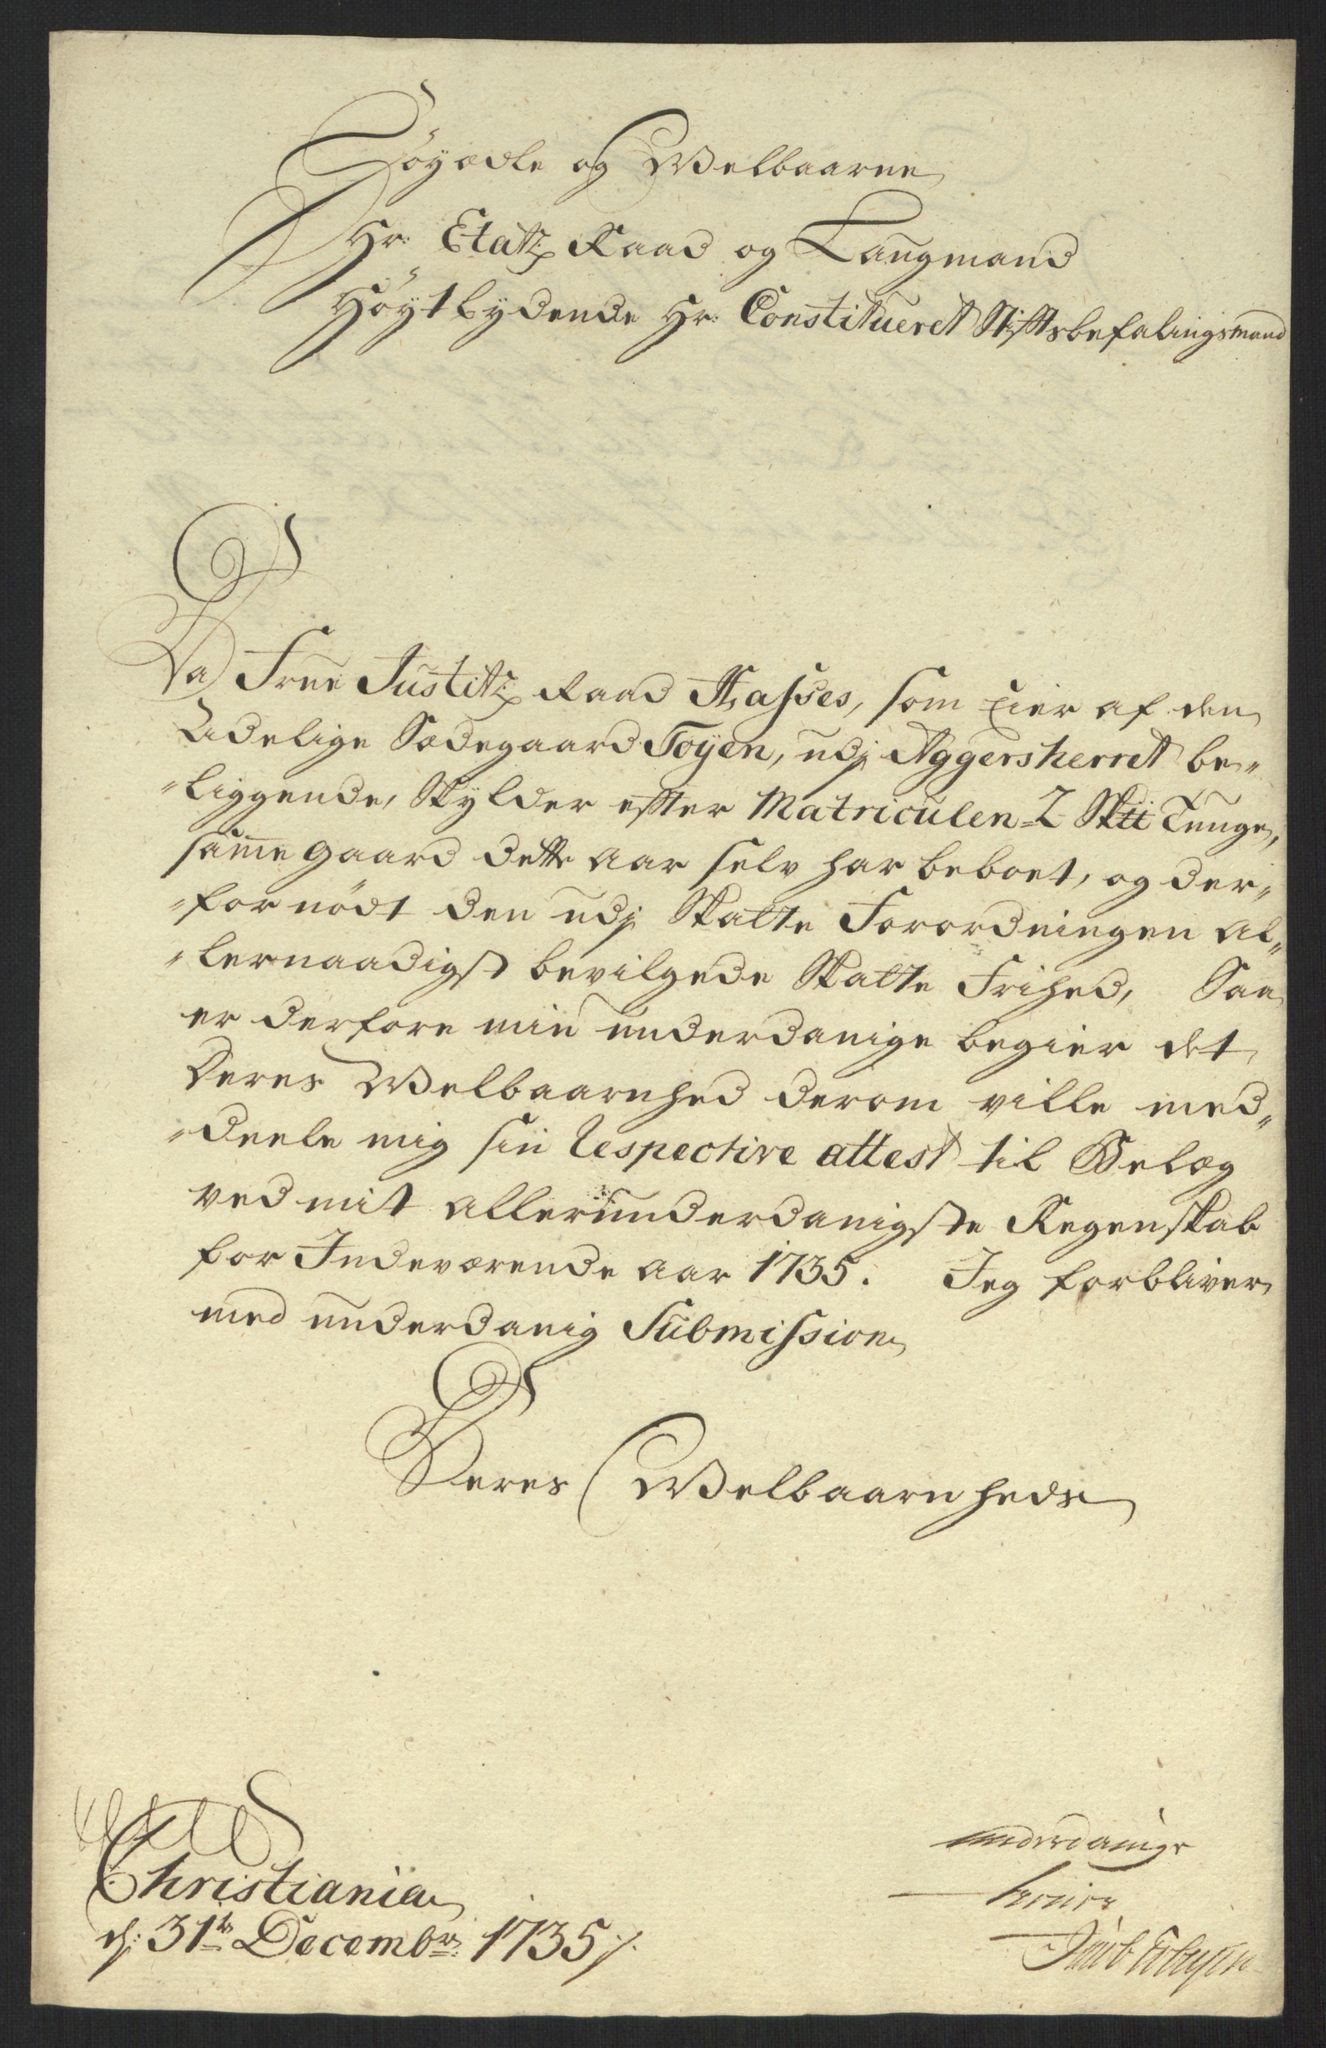 Höyædle og Welbaarne
Hr: Etatz Raad og Laugmand
Höytbydende Hr: Constitueret Stiftsbefalingsmand
Da Frue Justitz Raad Thasses, som Eier af den
Adelige Sædegaard Töyen, udj Aggersherret be-
-liggende, Skylder efter Matriculen 2 Sku Tunge,
samme gaard dette Aar selv har beboet, og der-
-for nödt den udj Skatte Forordningen Al-
-lernaadigst bevilgede Skatte Frihed, Saa
er derfore min underdanige begier det
Deres Welbaarnhed derom ville med-
-deele mig sin Respective attest til Belæg
ved mit allerunderdanigste Regenskab
for Indeværende Aar 1735. Jeg forbliver
med underdanig Submission
Deres Welbaarnheds
Christiania
d: 31te Decembr: 1735
underdanige
tienere